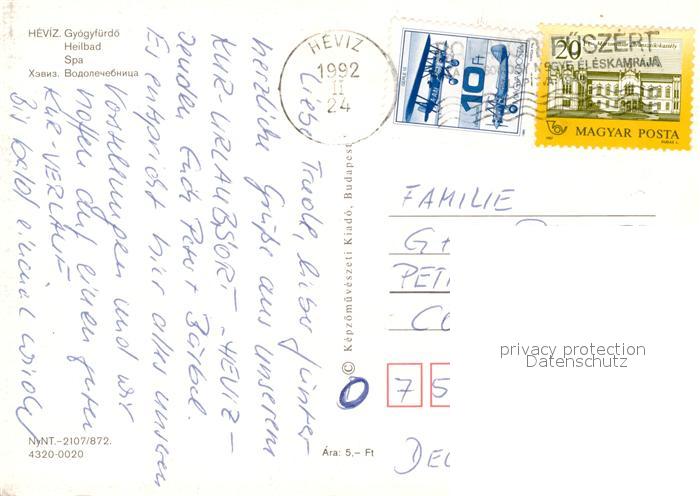 HÉVÍZ. Gyógyfürdő
Heilbad
Spa
Хэвиз. Водолечебница
HÉVIZ
1992
II
24
10 Ft
20 Ft
ÉLÉSKAMRÁJA
MAGYAR POSTA
Liebe Trude, lieber Günter
herzliche Grüße aus unserem
KUR-URLAUBSORT - HEVIZ -
senden Euch Peter Bärbel.
Es entspricht hier alles unseren
Vorstellungen und wir
hoffen auf einen guten
KUR-VERLAUF.
Bis bald einmal wieder
© Képzőművészeti Kiadó, Budapest
FAMILIE
G
PET
C
7 5
DE
privacy protection
Datenschutz
NyNT.–2107/872.
4320-0020
Ára: 5,– Ft